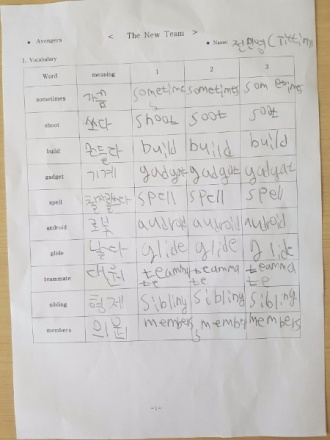 < The New Team >
• Avengers
• Name:
1. Vocabulary
Word meaning 1 2 3
sometimes 가끔 sometimes sometimes som etimes
shoot 쏘다 shoot soot soot
build 만들다 build build build
gadget 기계 gadget gadget gadget
spell spell spell spell
android 로봇 android android android
glide 날다 glide glide glide
teammate teamma teamma teamma
te te te
sibling 형제 Sibling Sibling Sibling
members members members members
-1-